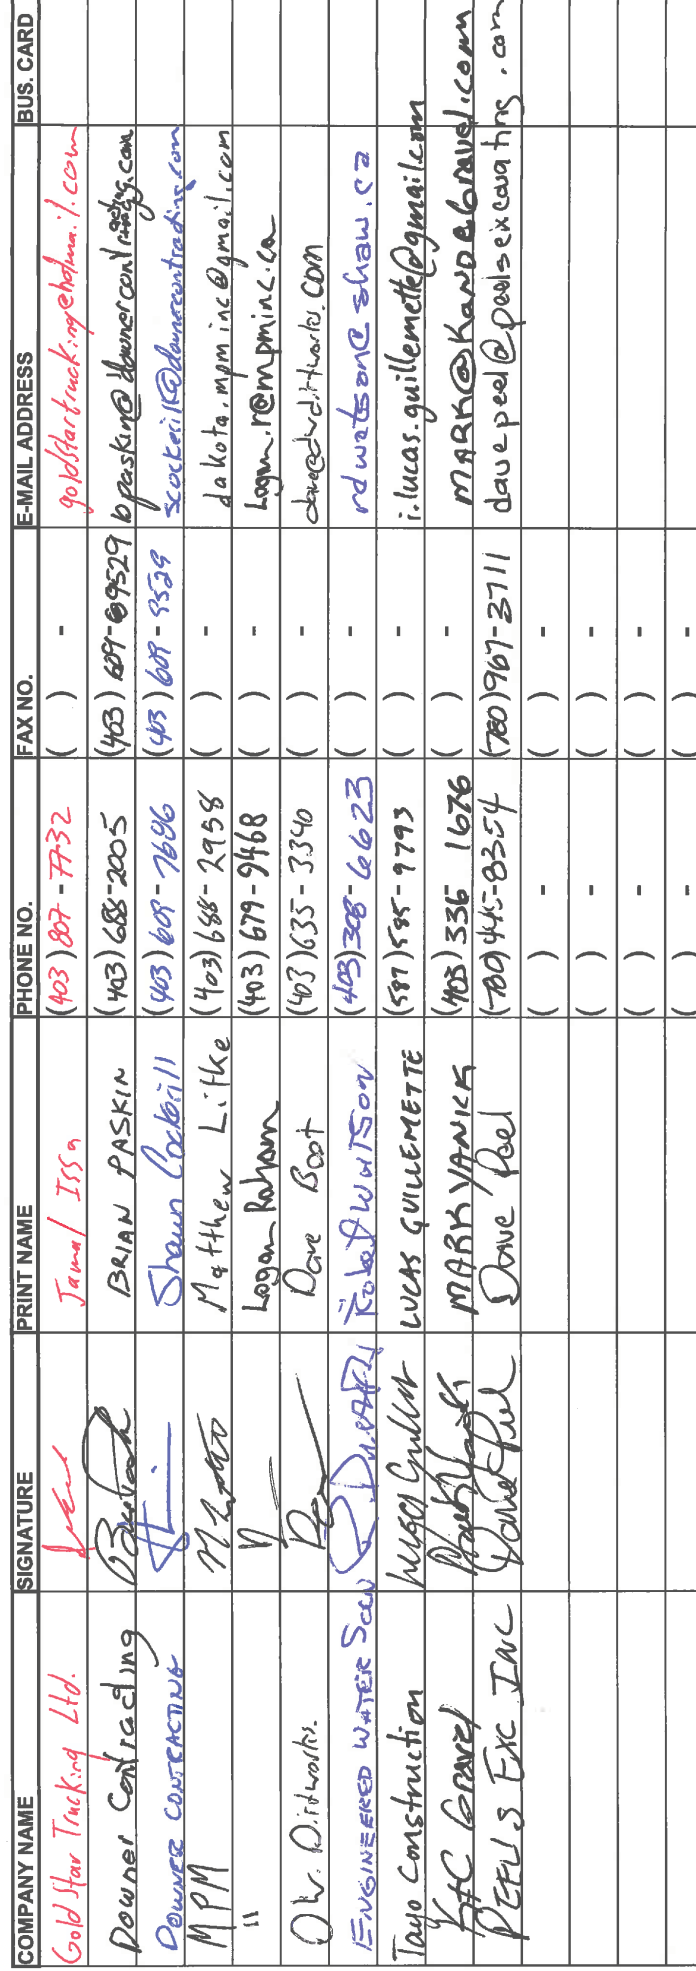 COMPANY NAME SIGNATURE PRINT NAME PHONE NO. FAX NO. E-MAIL ADDRESS BUS. CARD
Gold Star Trucking Ltd. Jamal Issa (403) 807-7732 ( ) - goldstartrucking@hotmail.com
Downer Contracting BRIAN PASKIN (403) 688-2005 (403) 609-9529 bpaskin@downercontracting.com
DOWNER CONTRACTING Shaun Cockerill (403) 609-7696 (403) 609-9529 scockerill@downercontracting.com
MPM Matthew Litke (403) 688-2958 ( ) - dakota.mpminc@gmail.com
" Logan Raham (403) 679-9468 ( ) - logan.r@mpminc.ca
D.W. Dirtworks. Dave Boot (403) 635-3340 ( ) - dave@dwdirtworks.com
ENGINEERED WATER Robert WATSON (403) 308-6623 ( ) - rdwatson@shaw.ca
Tayo Construction LUCAS GUILLEMETTE (587) 595-9793 ( ) - i.lucas.guillemette@gmail.com
K+C Gravel MARK YANICK (403) 336 1676 ( ) - MARK@KANDCGravel.com
PEELS EXC INC Dave Peel (780) 445-8354 (780) 967-3711 davepeel@peelsexcavating.com
( ) - ( ) -
( ) - ( ) -
( ) - ( ) -
( ) - ( ) -